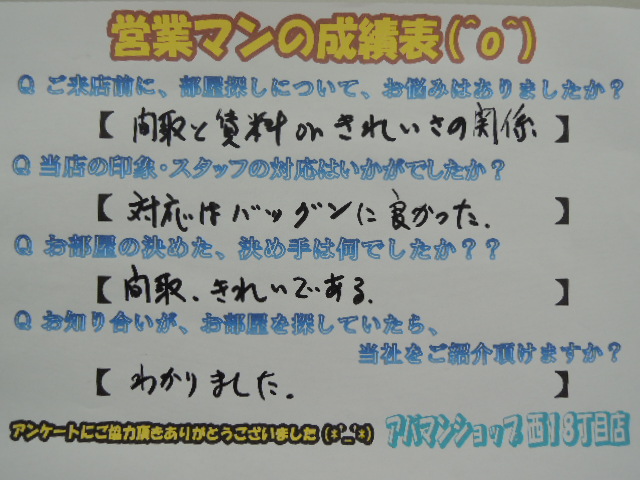 営業マンの成績表(^o^)
Q ご来店前に、部屋探しについて、お悩みはありましたか？
【 間取と賃料 きれいさの関係 】
Q 当店の印象・スタッフの対応はいかがでしたか？
【 対応はバツグンに良かった. 】
Q お部屋の決めた、決め手は何でしたか？？
【 間取、きれいである. 】
Q お知り合いが、お部屋を探していたら、
当社をご紹介頂けますか？
【 わかりました. 】
アンケートにご協力頂きありがとうございました(*^_^*) アパマンショップ西18丁目店